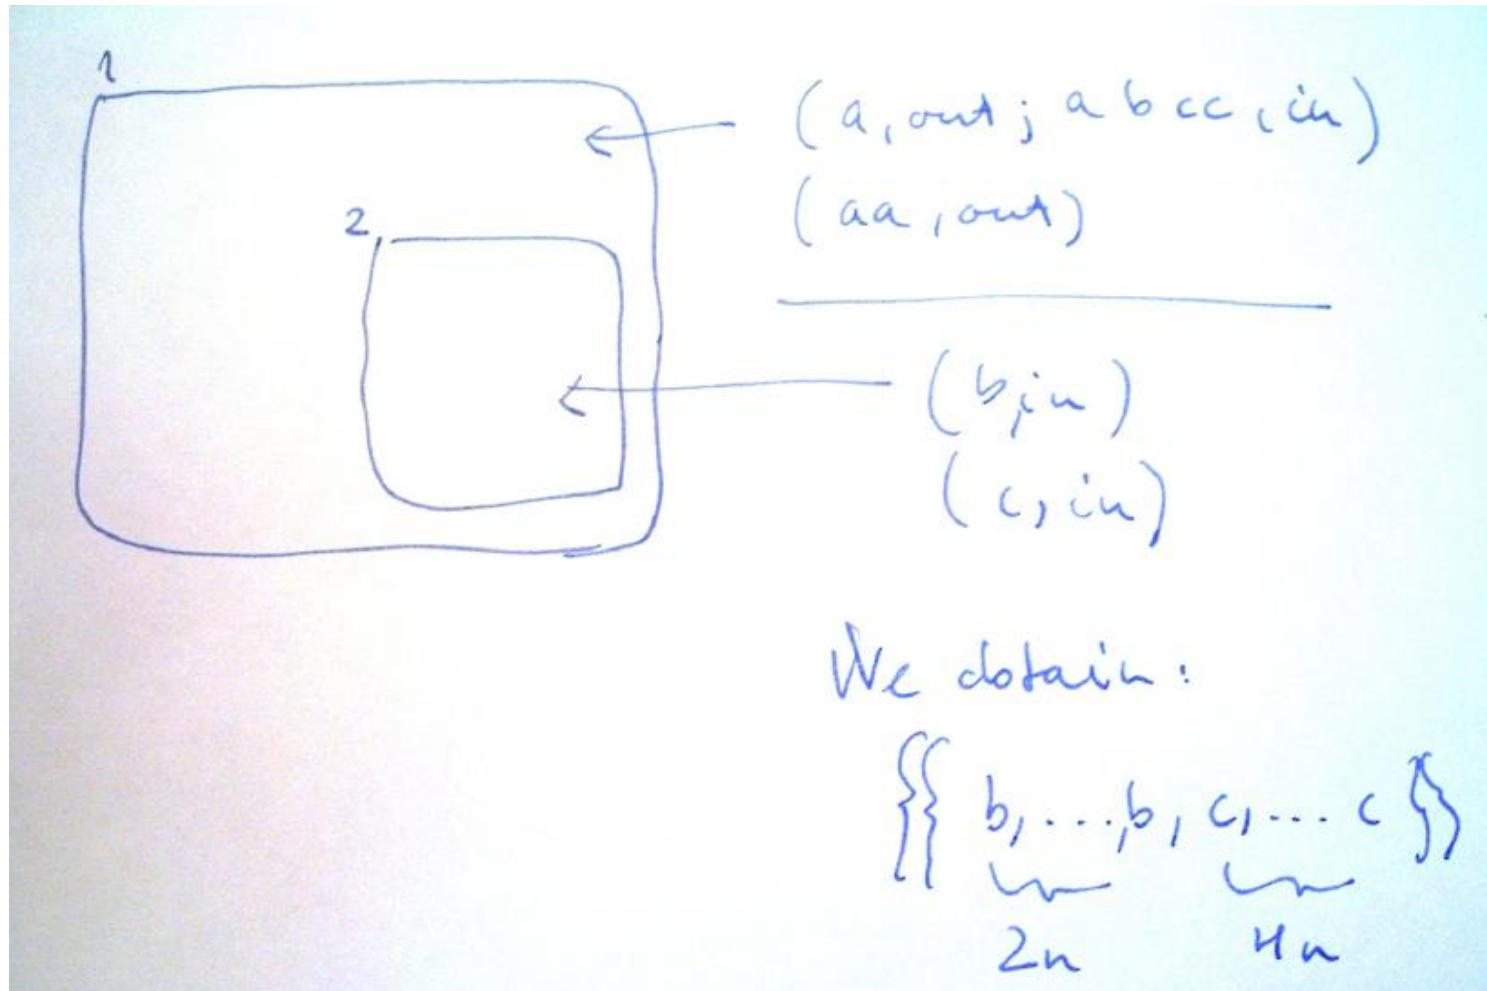 1
(a, out; a b cc, in)
(aa, out)
2
(b, in)
(c, in)
We obtain:
{{ b, ..., b, c, ... c }}
2n 4n